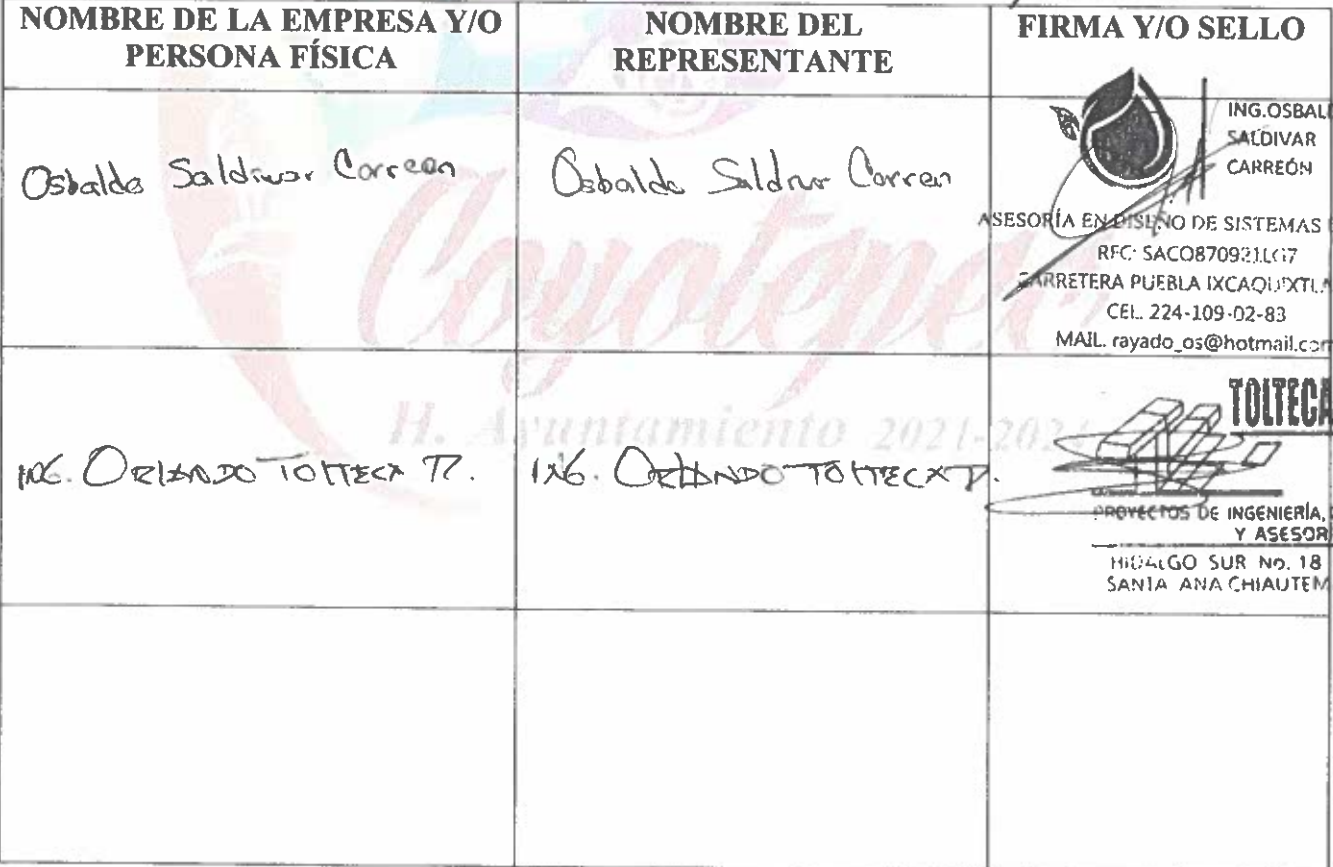 NOMBRE DE LA EMPRESA Y/O
PERSONA FÍSICA
NOMBRE DEL
REPRESENTANTE
FIRMA Y/O SELLO
Osbaldo Saldivar Correon
Osbaldo Saldivar Correon
ING.OSBAL
SALDIVAR
CARREÓN
ASESORÍA EN DISEÑO DE SISTEMAS
RFC: SACO870921LG7
CARRETERA PUEBLA IXCAQUIXTLA
CEL. 224-109-02-83
MAIL. rayado_os@hotmail.com
Coyotepec
H. Ayuntamiento 2021-2024
ING. ORLANDO TOLTECA
ING. ORLANDO TOLTECA
TOLTECA
PROYECTOS DE INGENIERÍA,
Y ASESOR
HIDALGO SUR No. 18
SANTA ANA CHIAUTEM